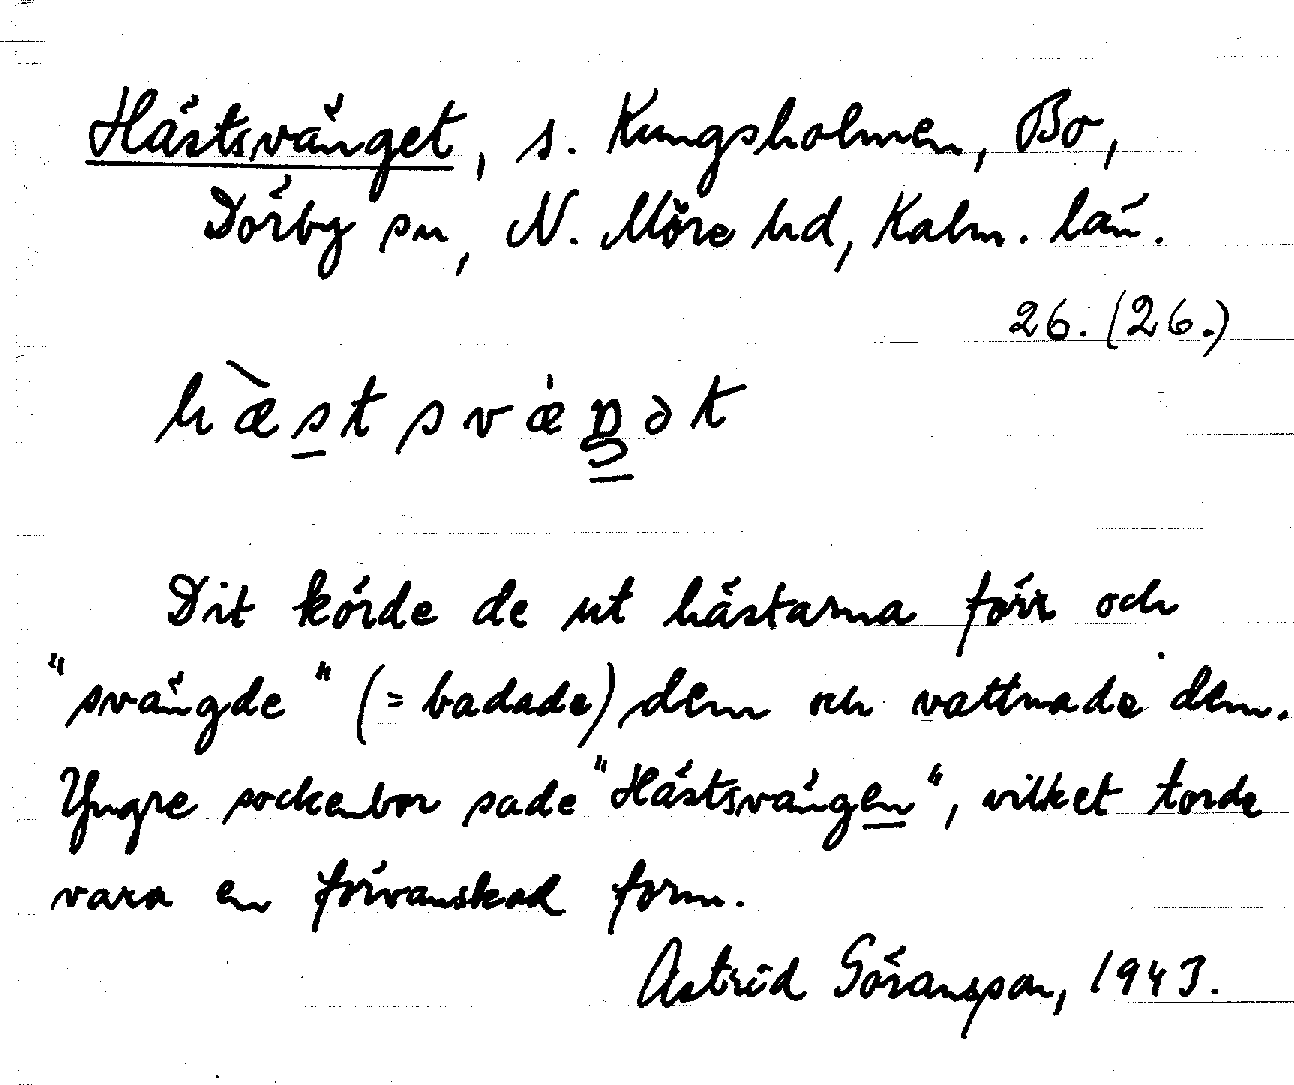 Hästsvänget, s. Kungsholmen, Bo,
Dörby sn, N. Möre hd, Kalm. län.
26. (26.)
hæ̀stsvæŋət
Dit körde de ut hästarna förr och
"svängde" (= badade) dem och vattnade dem.
Yngre sockenbor sade "Hästsvängen", vilket torde
vara en förvanskad form.
Astrid Göransson, 1943.